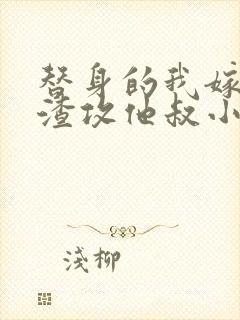 替身的我嫁
渣攻他叔小
浅柳